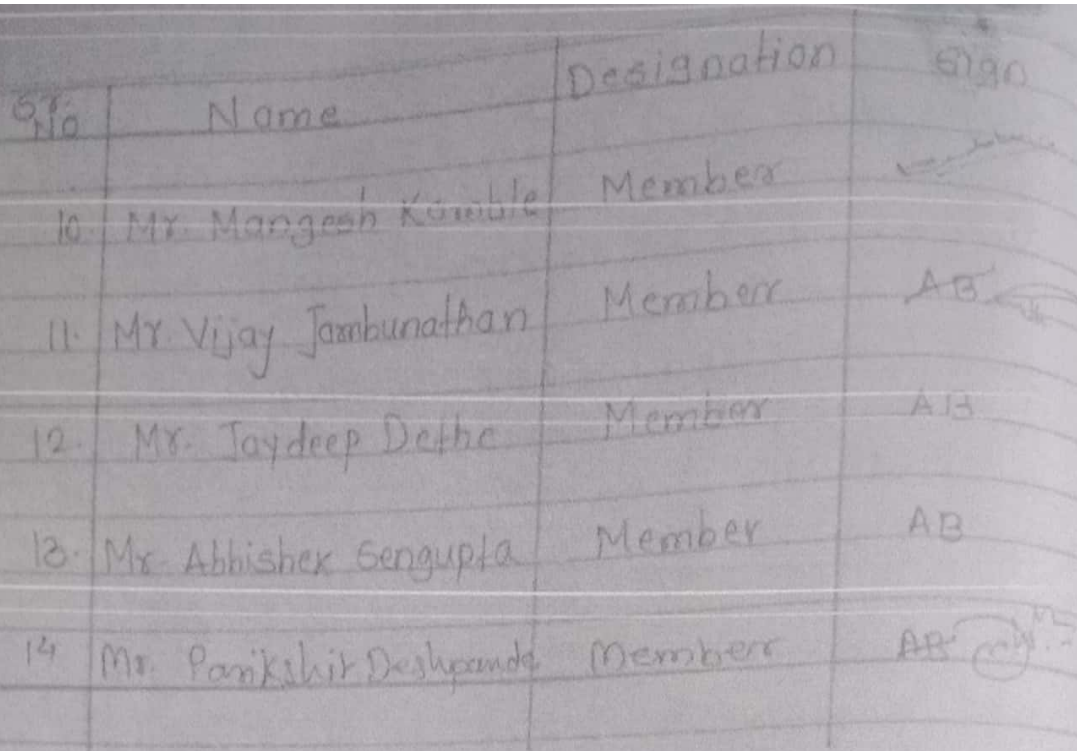 Sr. No Name Designation Sign
10. Mr. Mangesh Kamble Member
11. Mr. Vijay Jambunathan Member AB
12. Mr. Jaydeep Dethe Member AB
13. Mr. Abhishek Sengupta Member AB
14 Mr. Parikshit Deshpande Member AB